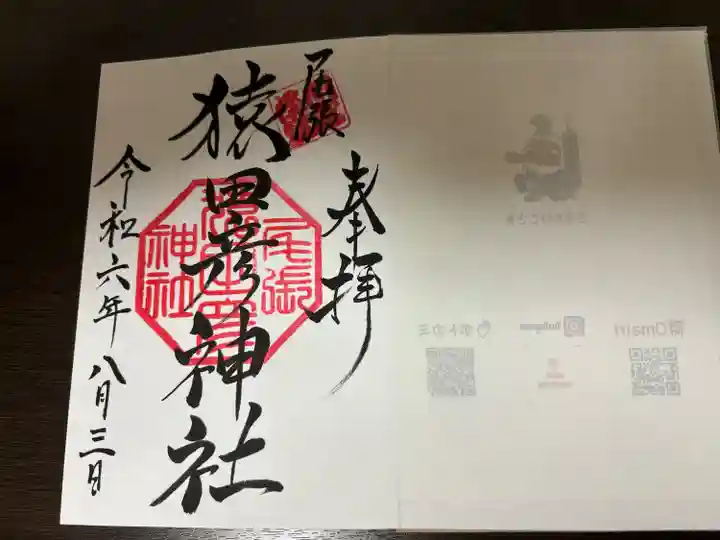 尾張
奉拝
猿田彦神社
令和六年八月三日
尾張
猿田彦
神社